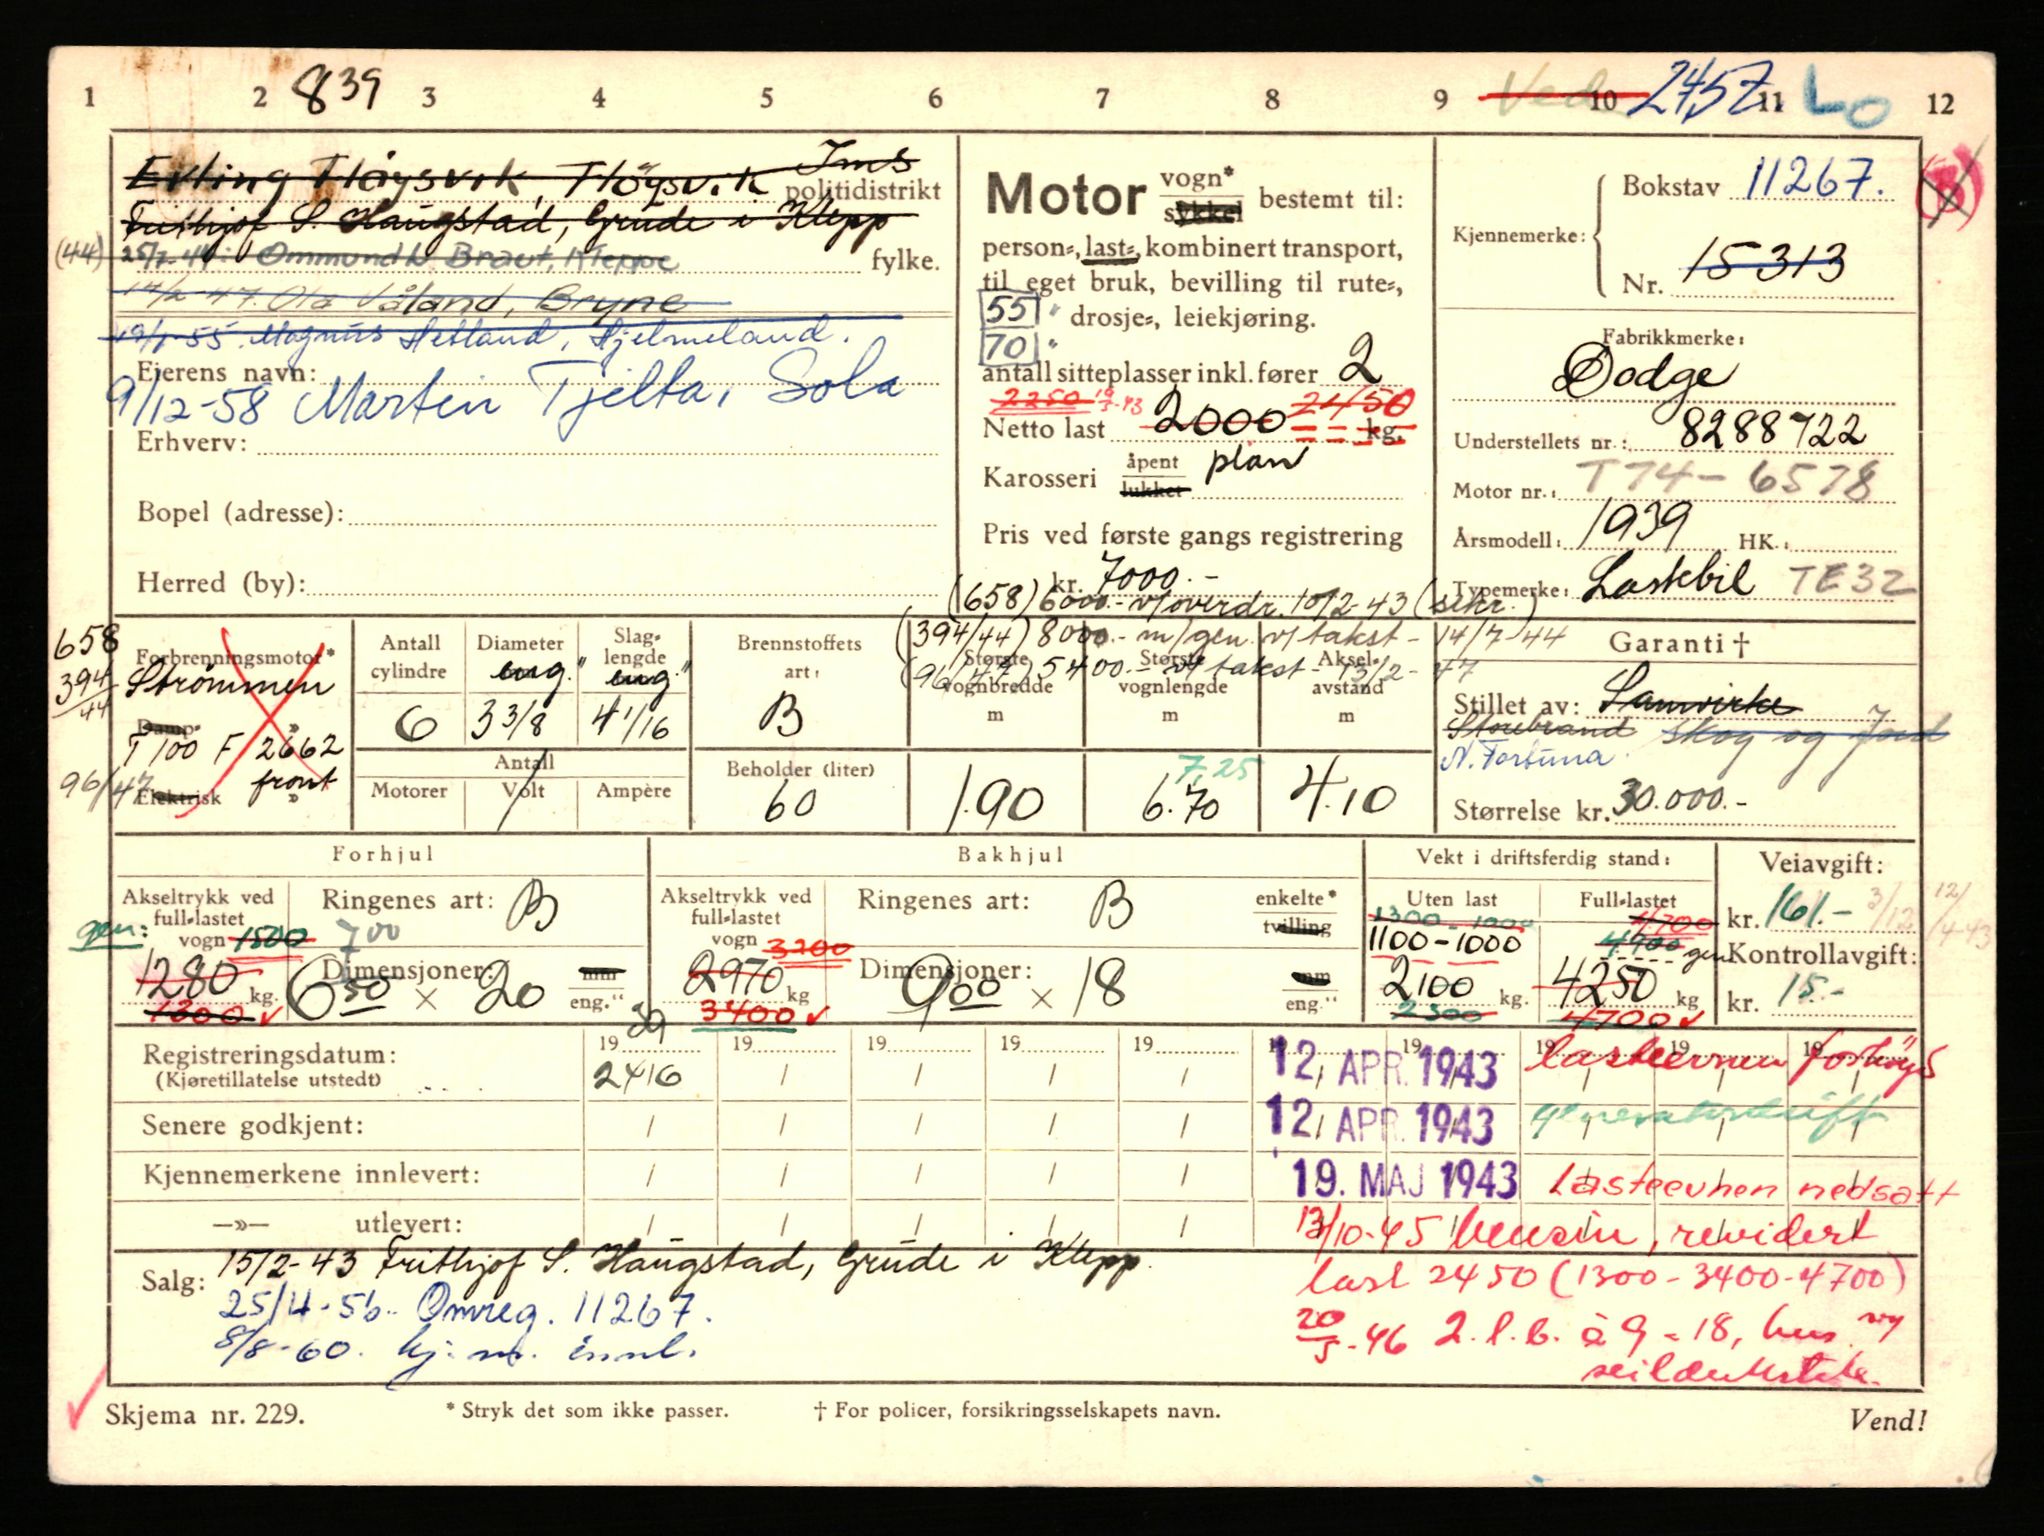 1 2 839 3 4 5 6 7 8 9 Ved 10 2457 11 Lo 12
Erling Fløysvik, Fløysvik Ims
politidistrikt
Frithjof S. Haugstad, Grude i Klepp
(44) 25/7-44: Ommund L. Braut, Kleppe fylke.
14/2-47 Ola Våland, Bryne
19/1-55. Magnus Hetland, Hjelmeland.
Ejerens navn:
9/12-58 Martin Tjelta, Sola
Erhverv:
Bopel (adresse):
Herred (by):
Motor vogn* sykkel bestemt til:
person-, last-, kombinert transport,
til eget bruk, bevilling til rute-,
55" drosje-, leiekjøring.
70"
antall sitteplasser inkl. fører 2
2250 19/5-43 2450
Netto last 2000 kg.
Karosseri åpent lukket plan
Pris ved første gangs registrering
kr. 7000.-
(658) 6000.- v/overdr. 10/2-43 (sekr.)
(394/44) 8000.- m/gen. v/takst - 14/7-44
(96/47) 5400.- v/takst - 13/2-47
Kjennemerke: Bokstav 11267. (B)
Nr. 15313
Fabrikkmerke:
Dodge
Understellets nr.: 8288722
Motor nr.: T74-6578
Årsmodell: 1939 HK.:
Typemerke: Lastebil TE32
Garanti †
Stillet av: Samvirke
Storebrand Skog og Jord
N. Fortuna.
Størrelse kr. 30.000.-
658
394/44
96/47
Forbrenningsmotor*
Strømmen
Damp- »
T 100 F 2662
front
Elektrisk »
Antall cylindre 6
Diameter eng." 3 3/8
Slag-lengde eng." 4 1/16
Antall
Motorer Volt Ampère
Brennstoffets art: B
Beholder (liter) 60
Største vognbredde m 1.90
Største vognlengde m 7,25 6.70
Aksel-avstand m 4.10
Forhjul
Akseltrykk ved full-lastet vogn
gen: 1500
1280 kg.
1300
Ringenes art: B
700
Dimensjoner: 6 50 × 20 mm eng."
Bakhjul
Akseltrykk ved full-lastet vogn 3200
2970 kg
3400
Ringenes art: B enkelte* tvilling
Dimensjoner: 9 00 × 18 mm eng."
Vekt i driftsferdig stand:
Uten last
1300 - 1000
1100-1000
2100 kg.
2300
Full-lastet
4700
4900 gen
4250 kg
4700
Veiavgift:
kr. 161.- 3/12 12/4-43
Kontrollavgift:
kr. 15.-
Registreringsdatum: 19 39 19 19 19 19 19 19 19 19 19
(Kjøretillatelse utstedt) 24/6 12. APR. 1943 lasteevnen forhøyes
Senere godkjent: 12. APR. 1943 generatordrift
Kjennemerkene innlevert: 19. MAJ 1943 Lasteevnen nedsatt
—»— utlevert: 13/10-45 bensin, revidert
last 2450 (1300-3400-4700)
20/5-46 2.l.b. à 9-18, hus
Salg: 15/2-43 Frithjof S. Haugstad, Grude i Klepp.
25/4-56. Omreg. 11267.
8/8-60. kj.m. innl.
Skjema nr. 229. * Stryk det som ikke passer. † For policer, forsikringsselskapets navn. Vend!